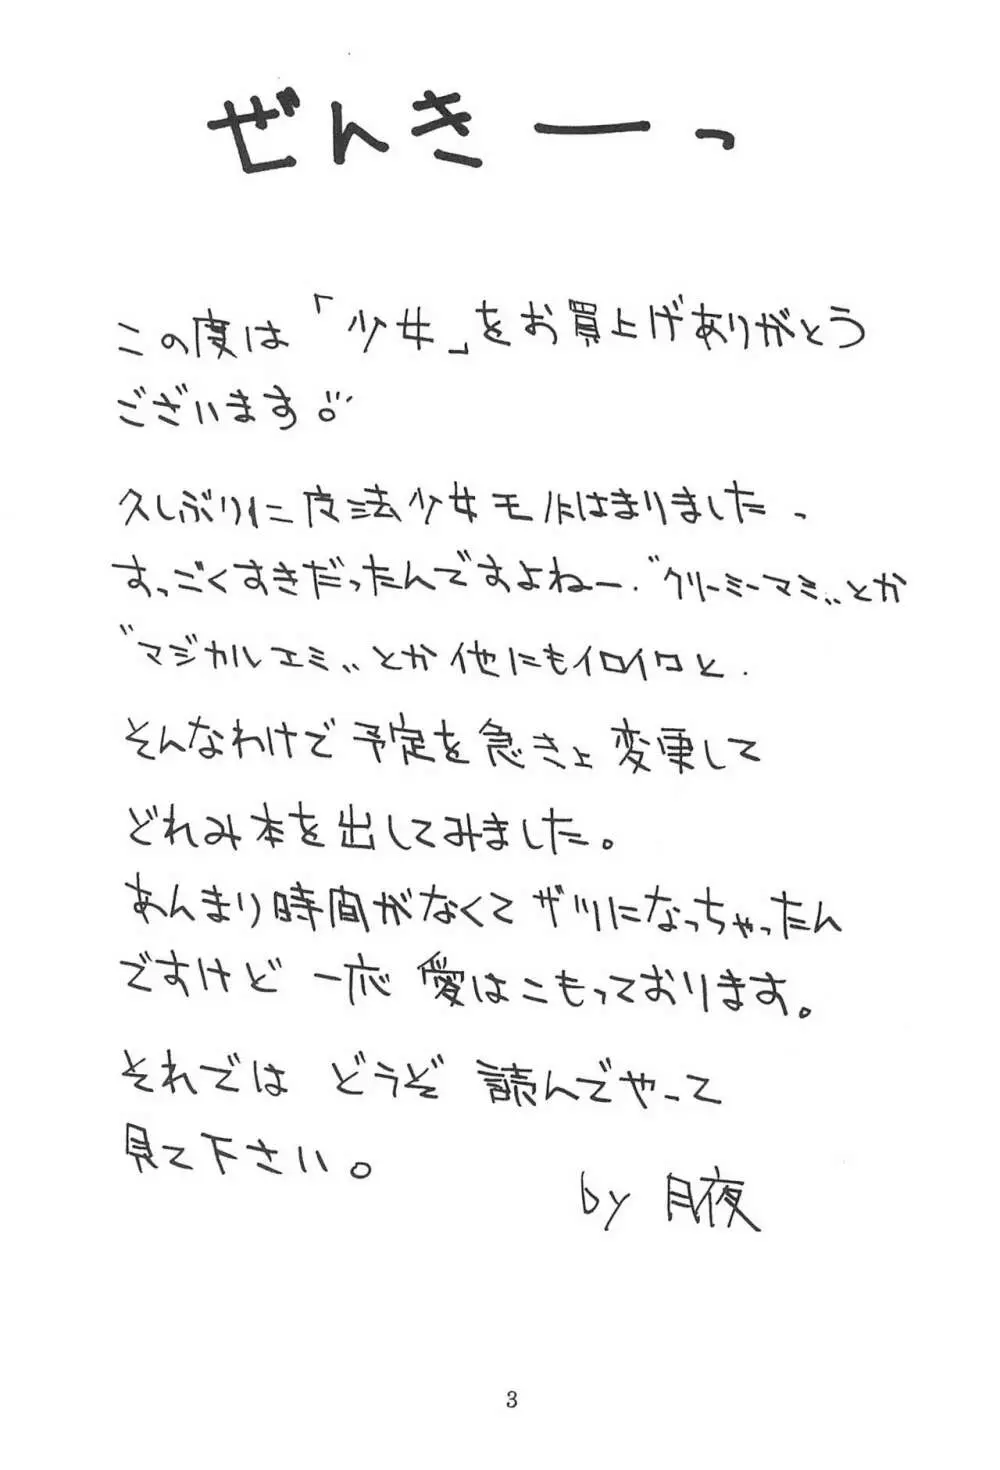 ぜんきーっ
この度は「少女」をお買上げありがとう
ございます。
久しぶりに魔法少女モノにはまりました、
すっごくすきだったんですよねー、"クリーミーマミ"とか
"マジカルエミ"とか他にもイロイロと、
そんなわけで予定を急きょ変更して
どれみ本を出してみました。
あんまり時間がなくてザツになっちゃったん
ですけど一応愛はこもっております。
それでは どうぞ 読んでやって
見て下さい。
by 月夜
3